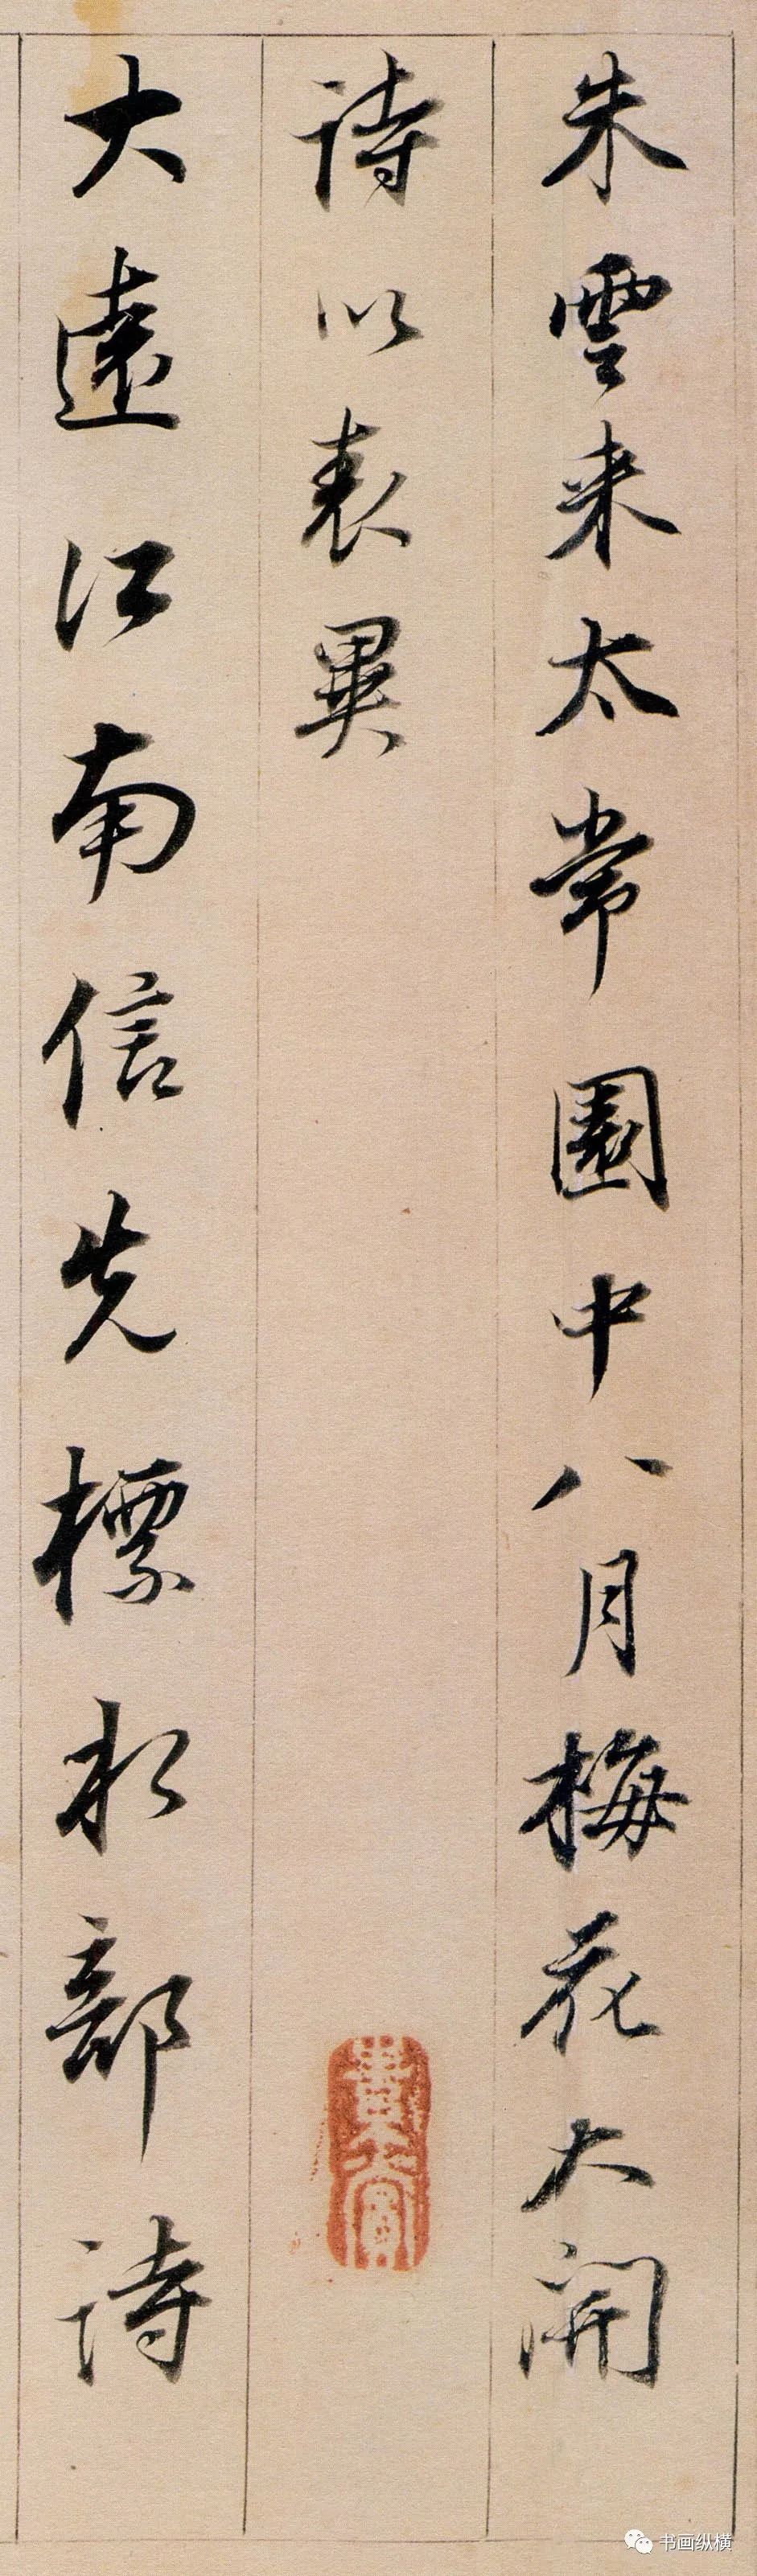 朱雲来太常園中八月梅花大開
詩以表異
大遠江南信先標水部詩
书画纵横